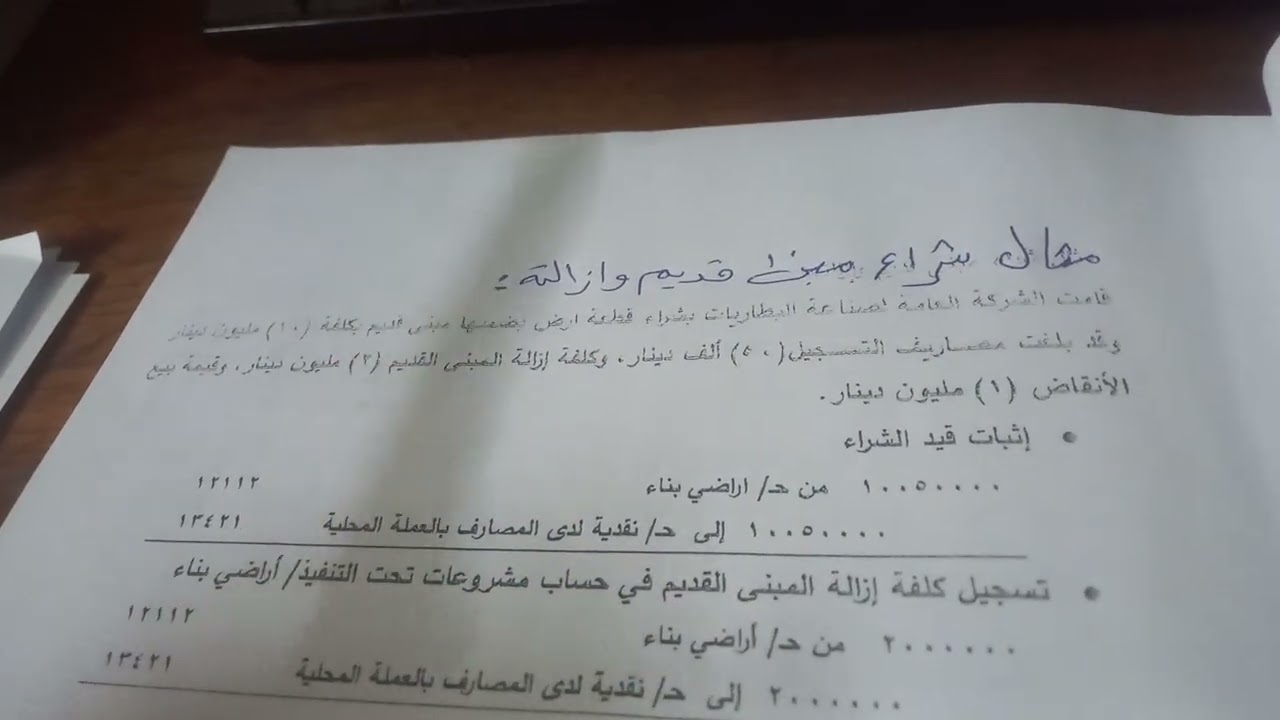 مثال شراء مبنى قديم وازالته :
قامت الشركة العامة لصناعة البطاريات بشراء قطعة ارض بضمنها مبنى قديم بكلفة (١٠) مليون دينار
وقد بلغت مصاريف التسجيل (٥٠) ألف دينار، وكلفة إزالة المبنى القديم (٢) مليون دينار، وقيمة بيع
الأنقاض (١) مليون دينار.
• إثبات قيد الشراء
١٠٠٥٠٠٠٠ من حـ/ اراضي بناء ١٢١١٢
١٠٠٥٠٠٠٠ إلى حـ/ نقدية لدى المصارف بالعملة المحلية ١٣٤٢١
• تسجيل كلفة إزالة المبنى القديم في حساب مشروعات تحت التنفيذ/ أراضي بناء
٢٠٠٠٠٠٠ من حـ/ أراضي بناء ١٢١١٢
٢٠٠٠٠٠٠ إلى حـ/ نقدية لدى المصارف بالعملة المحلية ١٣٤٢١